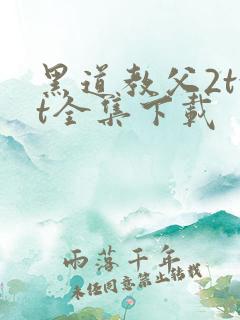 黑道教父2tx
t全集下载
雨落千年
未经同意禁止转载